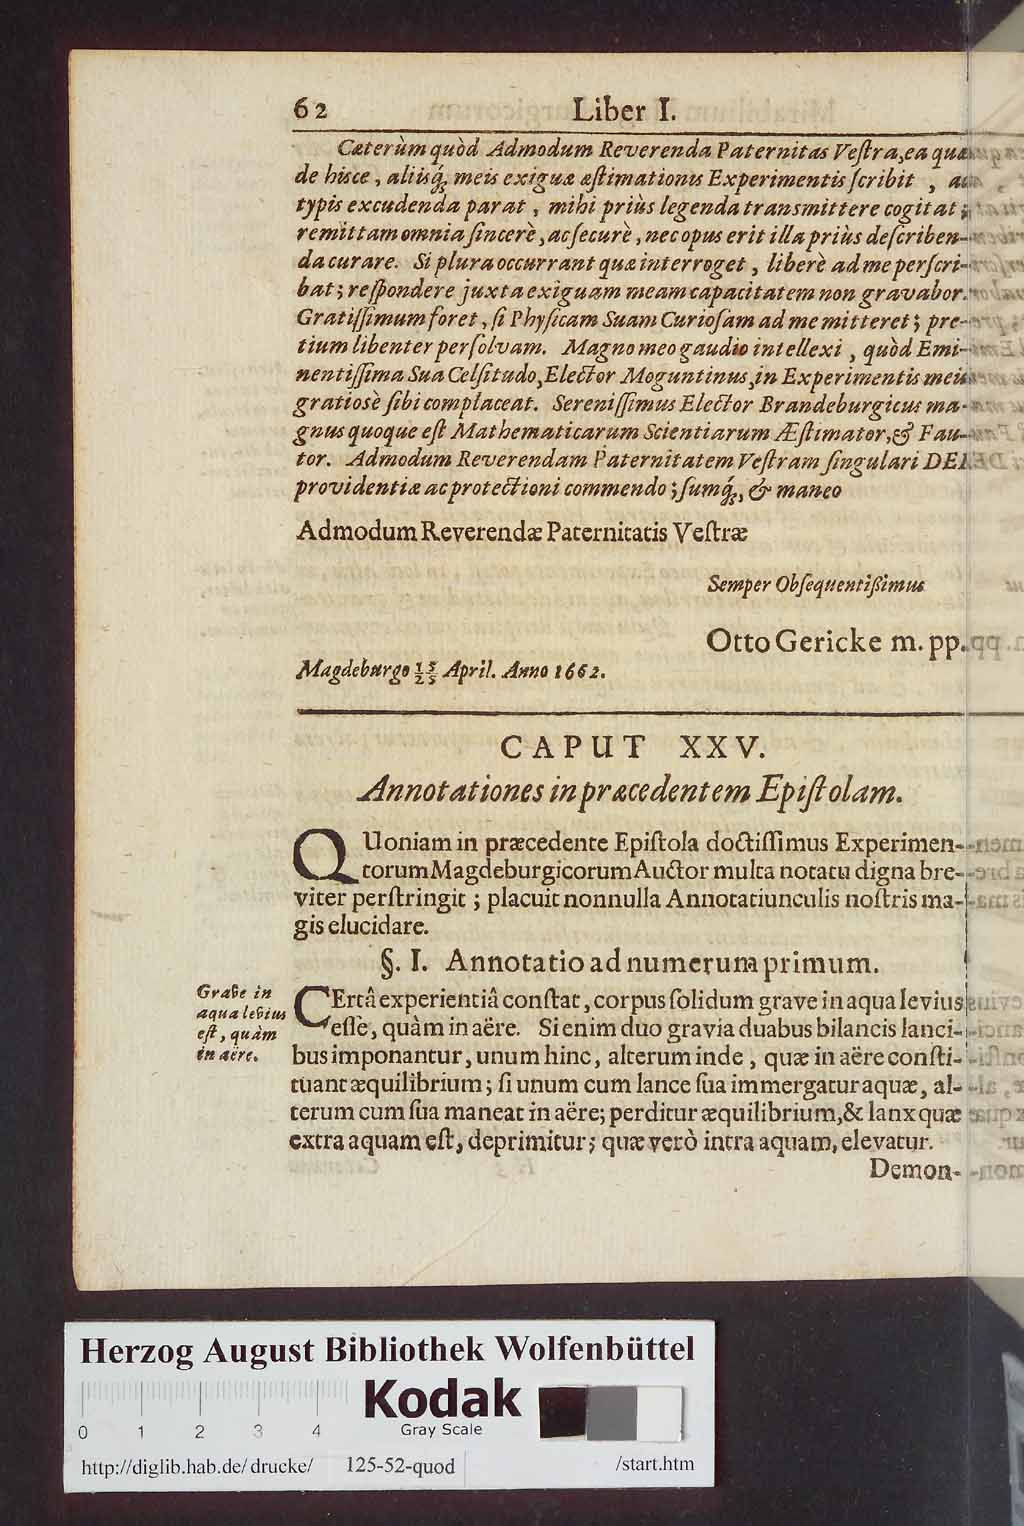 62 Liber I.
Cæterùm quòd Admodum Reverenda Paternitas Veſtra, ea quæ
de hisce, aliisq́; meis exiguæ æſtimationis Experimentis ſcribit , ac
typis excudenda parat , mihi priùs legenda transmittere cogitat;
remittam omnia ſincerè, ac ſecurè, nec opus erit illa priùs deſcriben-
da curare. Si plura occurrant quæ interroget , liberè ad me perſcri-
bat; reſpondere juxta exiguam meam capacitatem non gravabor.
Gratiſſimum foret, ſi Phyſicam Suam Curioſam ad me mitteret; pre-
tium libenter perſolvam. Magno meo gaudio intellexi , quòd Emi-
nentiſſima Sua Celſitudo, Elector Moguntinus, in Experimentis meis
gratiosè ſibi complaceat. Sereniſſimus Elector Brandeburgicus ma-
gnus quoque eſt Mathematicarum Scientiarum Æſtimator, & Fau-
tor. Admodum Reverendam Paternitatem Veſtram ſingulari DEI
providentiæ ac protectioni commendo; ſumq́;, & maneo
Admodum Reverendæ Paternitatis Veſtræ
Semper Obſequentißimus
Otto Gericke m. pp.
Magdeburgo 15/25 April. Anno 1662.
CAPUT XXV.
Annotationes in præcedentem Epiſtolam.
QUoniam in præcedente Epiſtola doctiſſimus Experimen-
torum Magdeburgicorum Auctor multa notatu digna bre-
viter perſtringit ; placuit nonnulla Annotatiunculis noſtris ma-
gis elucidare.
§. I. Annotatio ad numerum primum.
Grave in
aqua levius
eſt, quàm
in aëre.
CErtâ experientiâ conſtat, corpus ſolidum grave in aqua levius
eſſe, quàm in aëre. Si enim duo gravia duabus bilancis lanci-
bus imponantur, unum hinc, alterum inde , quæ in aëre conſti-
tuant æquilibrium; ſi unum cum lance ſua immergatur aquæ, al-
terum cum ſua maneat in aëre; perditur æquilibrium, & lanx quæ
extra aquam eſt, deprimitur; quæ verò intra aquam, elevatur.
Demon-
Herzog August Bibliothek Wolfenbüttel
0 1 2 3 4
Kodak
Gray Scale
http://diglib.hab.de/drucke/ 125-52-quod /start.htm